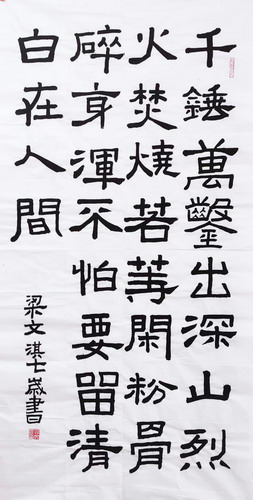 千錘萬鑿出深山烈
火焚燒若等閑粉骨
碎身渾不怕要留清
白在人間
梁文淇七歲書